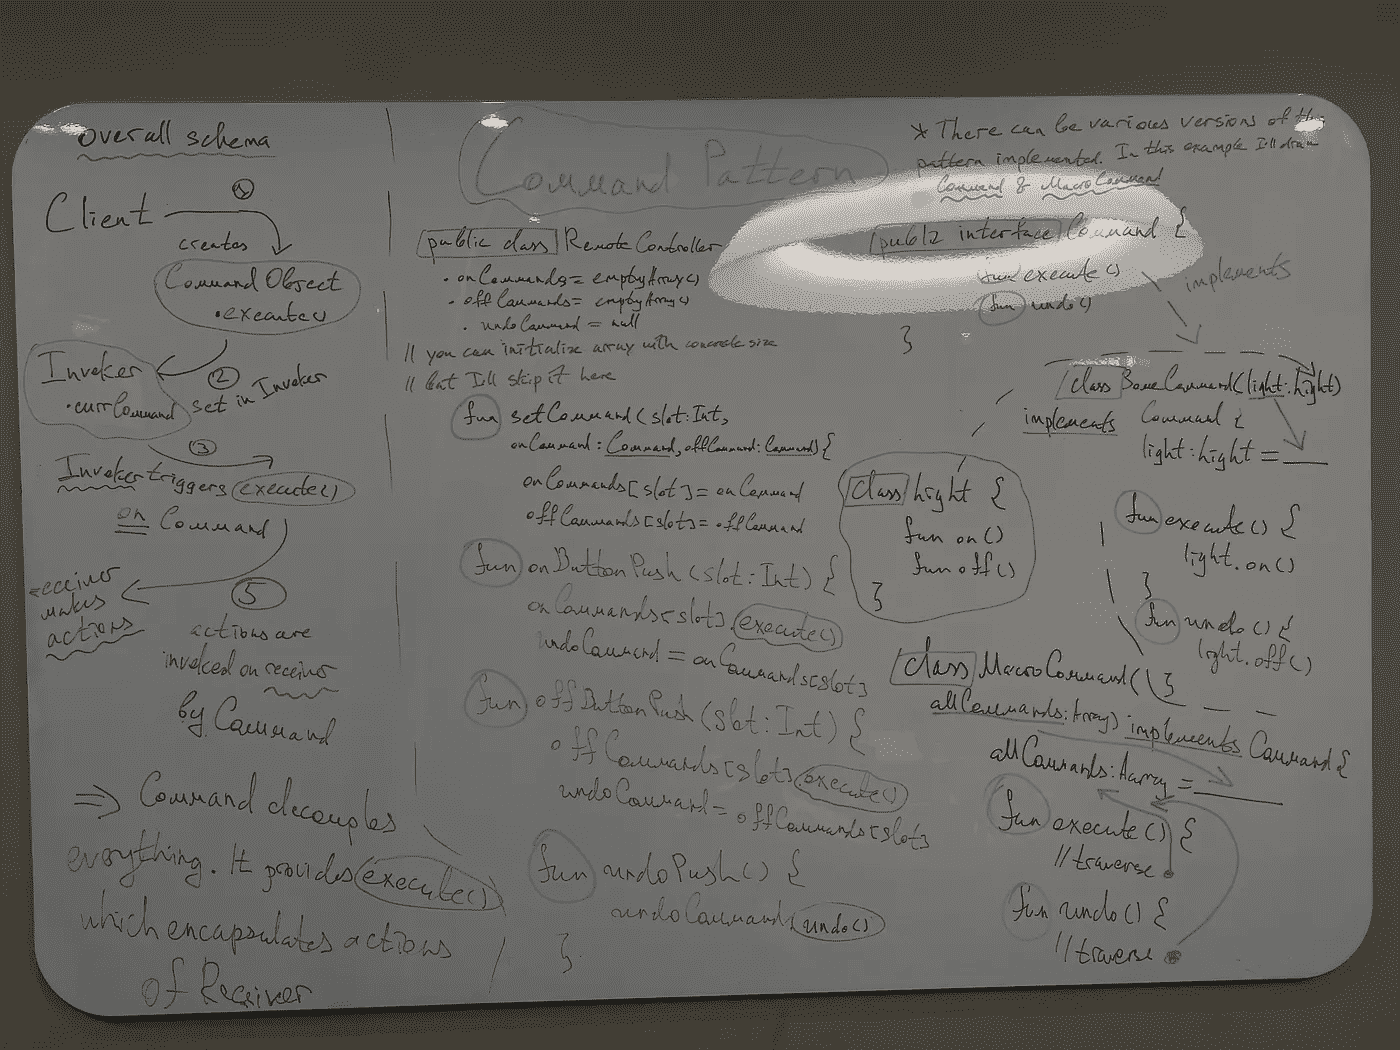 overall schema
①
Client
creates
Command Object
• execute()
Invoker
• currCommand
②
set in Invoker
③
Invoker triggers execute()
on Command
receiver
makes
actions
⑤
actions are
invoked on receiver
by Command
=> Command decouples
everything. It provides execute()
which encapsulates actions
of Receiver
Command Pattern
public class RemoteController
• onCommands = emptyArray()
• offCommands = emptyArray()
• undoCommand = null
// you can initialize array with concrete size
// but I'll skip it here
fun setCommand(slot:Int,
onCommand: Command, offCommand: Command) {
onCommands[slot] = onCommand
offCommands[slot] = offCommand
fun onButtonPush (slot:Int) {
onCommands[slot].execute()
undoCommand = onCommands[slot]
fun offButtonPush (slot:Int) {
offCommands[slot].execute()
undoCommand = offCommands[slot]
fun undoPush() {
undoCommand.undo()
}
* There can be various versions of this
pattern implemented. In this example I'll draw
Command & MacroCommand
interface Command {
fun execute()
fun undo()
}
implements
class Command(light:Light)
implements Command {
light:Light = __
fun execute() {
light.on()
}
fun undo() {
light.off()
}
class Light {
fun on()
fun off()
}
class MacroCommand(
allCommands:Array) implements Command {
allCommands:Array = ______
fun execute() {
// traverse
fun undo() {
// traverse